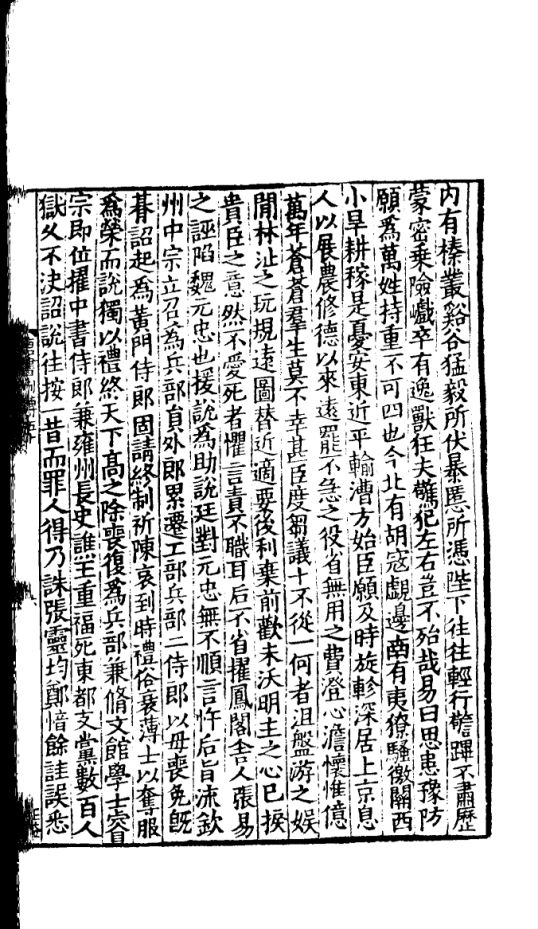 內有榛叢谿谷猛毅所伏暴慝所馮陛下往往輕行警蹕不肅歷
蒙密乗險巇卒有逸獸狂夫驚犯左右豈不殆哉易曰思患豫防
願爲萬姓持重不可四也今北有胡寇覰邊南有夷獠騷徼關西
小旱耕稼是憂安東近平輸漕方始臣願及時旋軫深居上京息
人以展農修德以來遠罷不急之役省無用之費澄心澹懷惟億
萬年蒼蒼羣生莫不幸甚臣度芻議十不從一何者沮盤游之娱
閒林沚之玩規遠圖替近適要後利棄前歡未沃明主之心已捩
貴臣之意然不愛死者懼言責不職耳后不省擢鳳閣舍人張易
之誣陷魏元忠也援說爲助說廷對元忠無不順言忤后旨流欽
州中宗立召爲兵部貟外郎累遷工部兵部二侍郎以母喪免旣
朞詔起爲黃門侍郎固請終制祈陳哀到時禮俗衰薄士以奪服
爲榮而說獨以禮終天下高之除喪復爲兵部兼脩文館學士睿
宗即位擢中書侍郎兼雍州長史譙王重福死東都支黨數百人
獄久不決詔說往按一昔而罪人得乃誅張靈均鄭愔餘詿誤悉